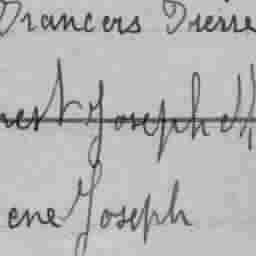 Francers Pierre
nest Joseph
ene Joseph